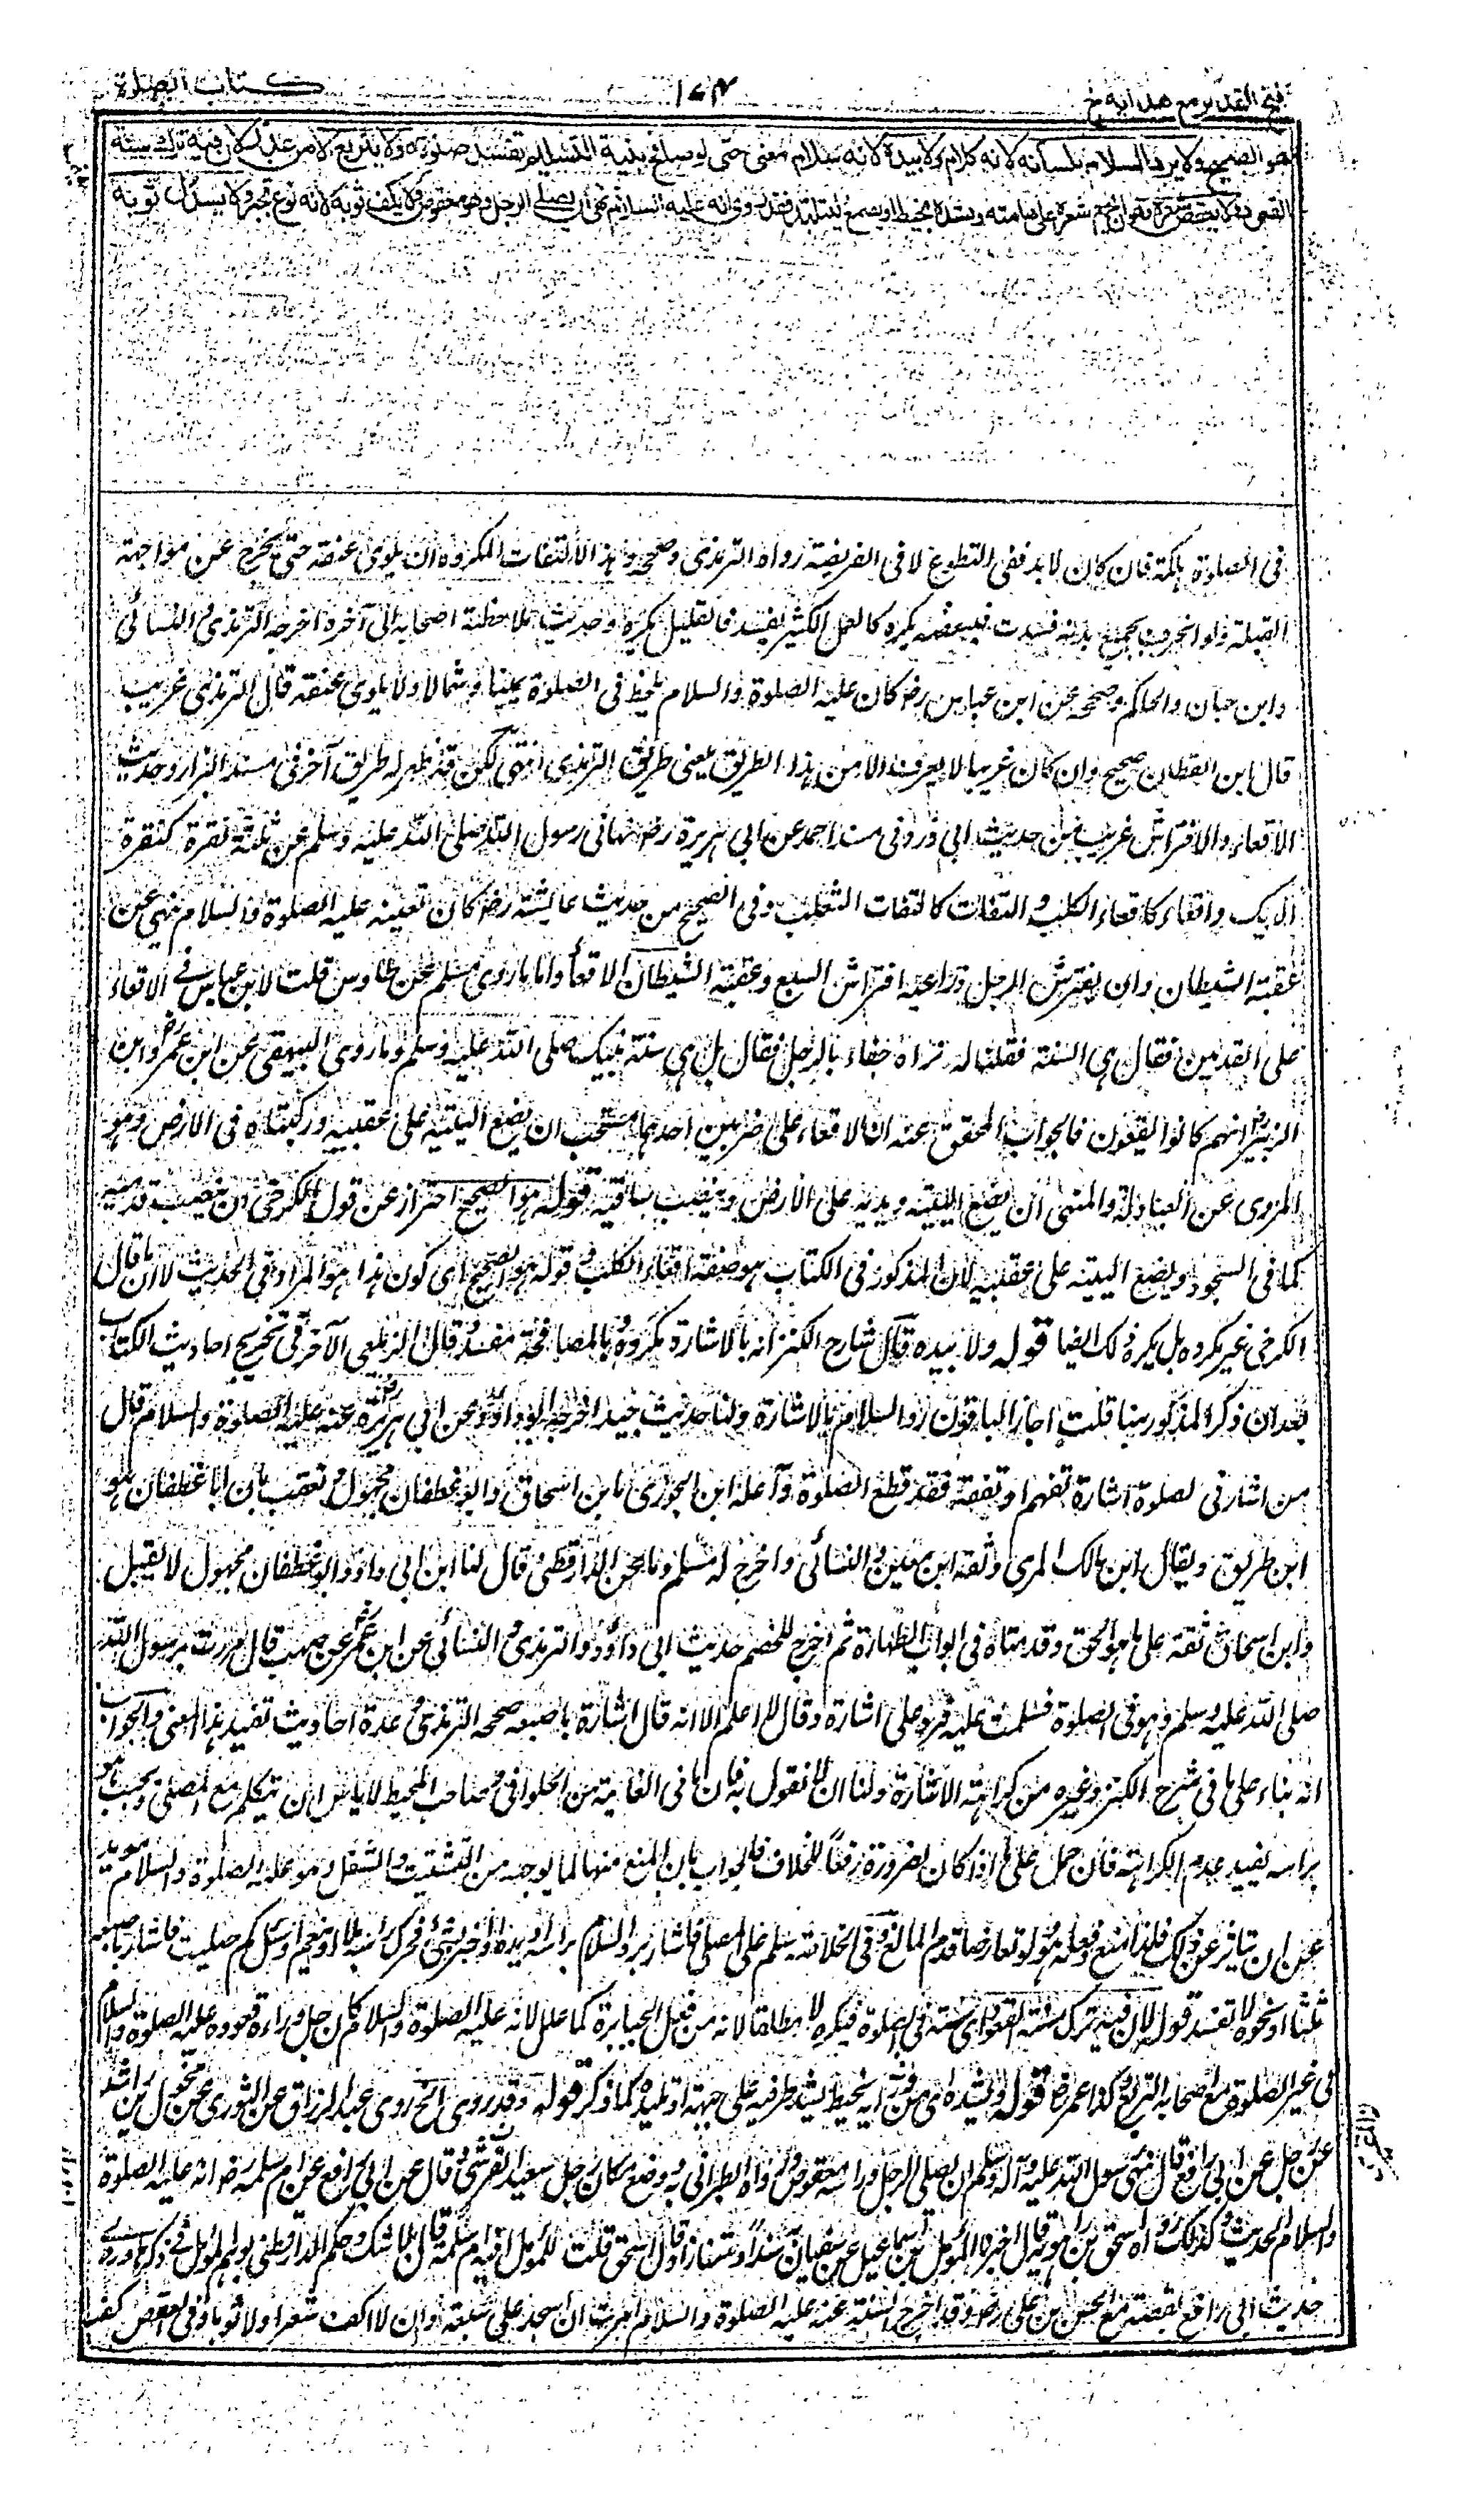 فتح القدير مع هدايه ج
١٧٤
كتاب الصلوة
هو الصحيح ولا يرد السلام بلسانه لانه كلام ولا بيده لانه سلام معنى حتى لو صافح بنية التسليم تفسد صلوته ولا يتربع الا من عذر لان فيه ترك سنة
القعود ولا يعقص شعره وهو ان يجمع شعره على هامته ويشده بخيط او بصمغ ليتلبد فقد روى انه عليه السلام نهى ان يصلى الرجل وهو معقوص ولا يكف ثوبه لانه نوع تجبر ولا يسدل ثوبه
فى الصلوة هلكة فان كان لا بد ففى التطوع لا فى الفريضة رواه الترمذى وصححه وهذا الالتفات المكروه ان يلوى عنقه حتى يخرج عن مواجهة
القبلة ولو انحرف بجميع بدنه فسدت فببعضه يكره كالعمل الكثير يفسد فالقليل يكره وحديث ملاحظته اصحابه الى آخره اخرجه الترمذى والنسائى
وابن حبان والحاكم وصححه عن ابن عباس رض كان عليه الصلوة والسلام يلحظ فى الصلوة يمينا وشمالا ولا يلوى عنقه قال الترمذى غريب
قال ابن القطان صحيح وان كان غريبا لا يعرف الا من هذا الطريق يعنى طريق الترمذى انتهى لكن قد ظهر له طريق آخر فى مسند البزار وحديث
الاقعاء والافتراش غريب من حديث ابى ذر وفى مسند احمد عن ابى هريرة رض نهانى رسول الله صلى الله عليه وسلم عن ثلثة نقرة كنقرة
الديك واقعاء كاقعاء الكلب والتفات كالتفات الثعلب وفى الصحيح من حديث عايشة رض كان تعنيه عليه الصلوة والسلام ينهى عن
عقبة الشيطان وان يفترش الرجل ذراعيه افتراش السبع وعقبة الشيطان الاقعاء واما ما روى مسلم عن طاوس قلت لابن عباس فى الاقعاء
على القدمين فقال هى السنة فقلنا له نراه جفاء بالرجل فقال بل هى سنة نبيك صلى الله عليه وسلم وما روى البيهقى عن ابن عمر رض وابن
الزبير رض انهم كانوا يقعون فالجواب المحقق عنه ان الاقعاء على ضربين احدهما مستحب ان يضع اليتيه على عقبيه وركبتاه فى الارض وهو
المروى عن العبادلة والمنهى ان يضع اليتيه ويديه على الارض وينصب ساقيه قوله هو الصحيح احتراز عن قول الكرخى ان ينصب قدميه
كما فى السجود ويضع اليتيه على عقبيه لان المذكور فى الكتاب هو صفة اقعاء الكلب و قوله هو الصحيح اى كون هذا هو المراد فى الحديث لا ان ما قال
الكرخى غير مكروه بل يكره ذلك ايضا قوله ولا بيده قال شارح الكنز انه بالاشارة مكروه وبالمصافحة مفسد قال الزيلعى الآخر فى تخريج احاديث الكتاب
بعد ان ذكر المذكور هنا قلت اجاز الباقون رد السلام بالاشارة ولنا حديث جيد اخرجه ابو داؤد عن ابى هريرة رض عنه عليه الصلوة والسلام قال
من اشار فى الصلوة اشارة تفهم او تفقه فقد قطع الصلوة وآعله ابن الجوزى بابن اسحاق وابو غطفان مجهول وتعقب بان ابا غطفان هو
ابن طريف ويقال ابن مالك المرى وثقه ابن معين والنسائى واخرج له مسلم وما عن الدارقطنى قال لنا ابن ابى داؤد ابو غطفان مجهول لا يقبل
وابن اسحاق ثقة على ما هو الحق وقد مناه فى ابواب الطهارة ثم اخرج للخصم حديث ابى داؤد والترمذى والنسائى عن ابن عمر عن صهيب قال مررت برسول الله
صلى الله عليه وسلم وهو فى الصلوة فسلمت عليه فرد على اشارة وقال لا اعلم الا انه قال اشارة باصبعه صححه الترمذى و عدة احاديث تفيد هذا المعنى والجواب
انه بناء على ما فى شرح الكنز وغيره من كراهة الاشارة ولنا ان لا نقول به فان ما فى الغاية من الحلوانى وصاحب المحيط لا باس ان يتكلم مع المصلى ويجيب هو
براسه يفيد عدم الكراهة فان حمل على ما اذا كان لضرورة رفعا للخلاف فالجواب بان المنع منها لما يوجبه من التشتت والشغل وهو عليه الصلوة والسلام مويد
عن ان يتاثر عن ذلك فلذا منع وفعله هو ولو تعارضا قدم المانع وفى الخلاصة سلم على المصلى فاشار برد السلام براسه او بيده او اخبر بشئ فحرك راسه بلا او نعم او سئل كم صليت فاشار باصبعه
ثلثا او نحوه لا تفسد قوله لان فيه ترك سنة القعود اى سنته فى الصلوة فيكره لا مطلقا لانه من فعل الجبابرة كما علل لانه عليه الصلوة والسلام كان جل وراءه قعوده عليه الصلوة والسلام
فى غير الصلوة مع اصحابه التربع وكذا عمر رض قوله ويشده اى من وفرته بخيط يشد طرفيه على جبهته او تلبيده كما ذكر قوله وقد روى الخ روى عبد الرزاق عن الثورى عن مخول بن راشد
عن رجل عن ابى رافع قال نهى رسول الله صلى الله عليه وآله وسلم ان يصلى الرجل وراسه معقوص ورواه الطبرانى به وضع مكان رجل سعيد المقبرى قال عن ابى رافع عن ام سلمة رض انه عليه الصلوة
والسلام الحديث وكذلك رواه اسحق بن راهويه قال اخبرنا المؤمل بن اسماعيل عن سفيان سندا ومتنا وزاد قال اسحق قلت للمؤمل افيه ام سلمة قال بلا شك وحكم الدارقطنى بوهم المؤمل فى ذكرها ورده
حديث ابى رافع بقصته مع الحسن بن على رض وقد اخرج الستة عنه عليه الصلوة والسلام امرت ان اسجد على سبعة وان لا اكف شعرا ولا ثوبا وفى العقص كف